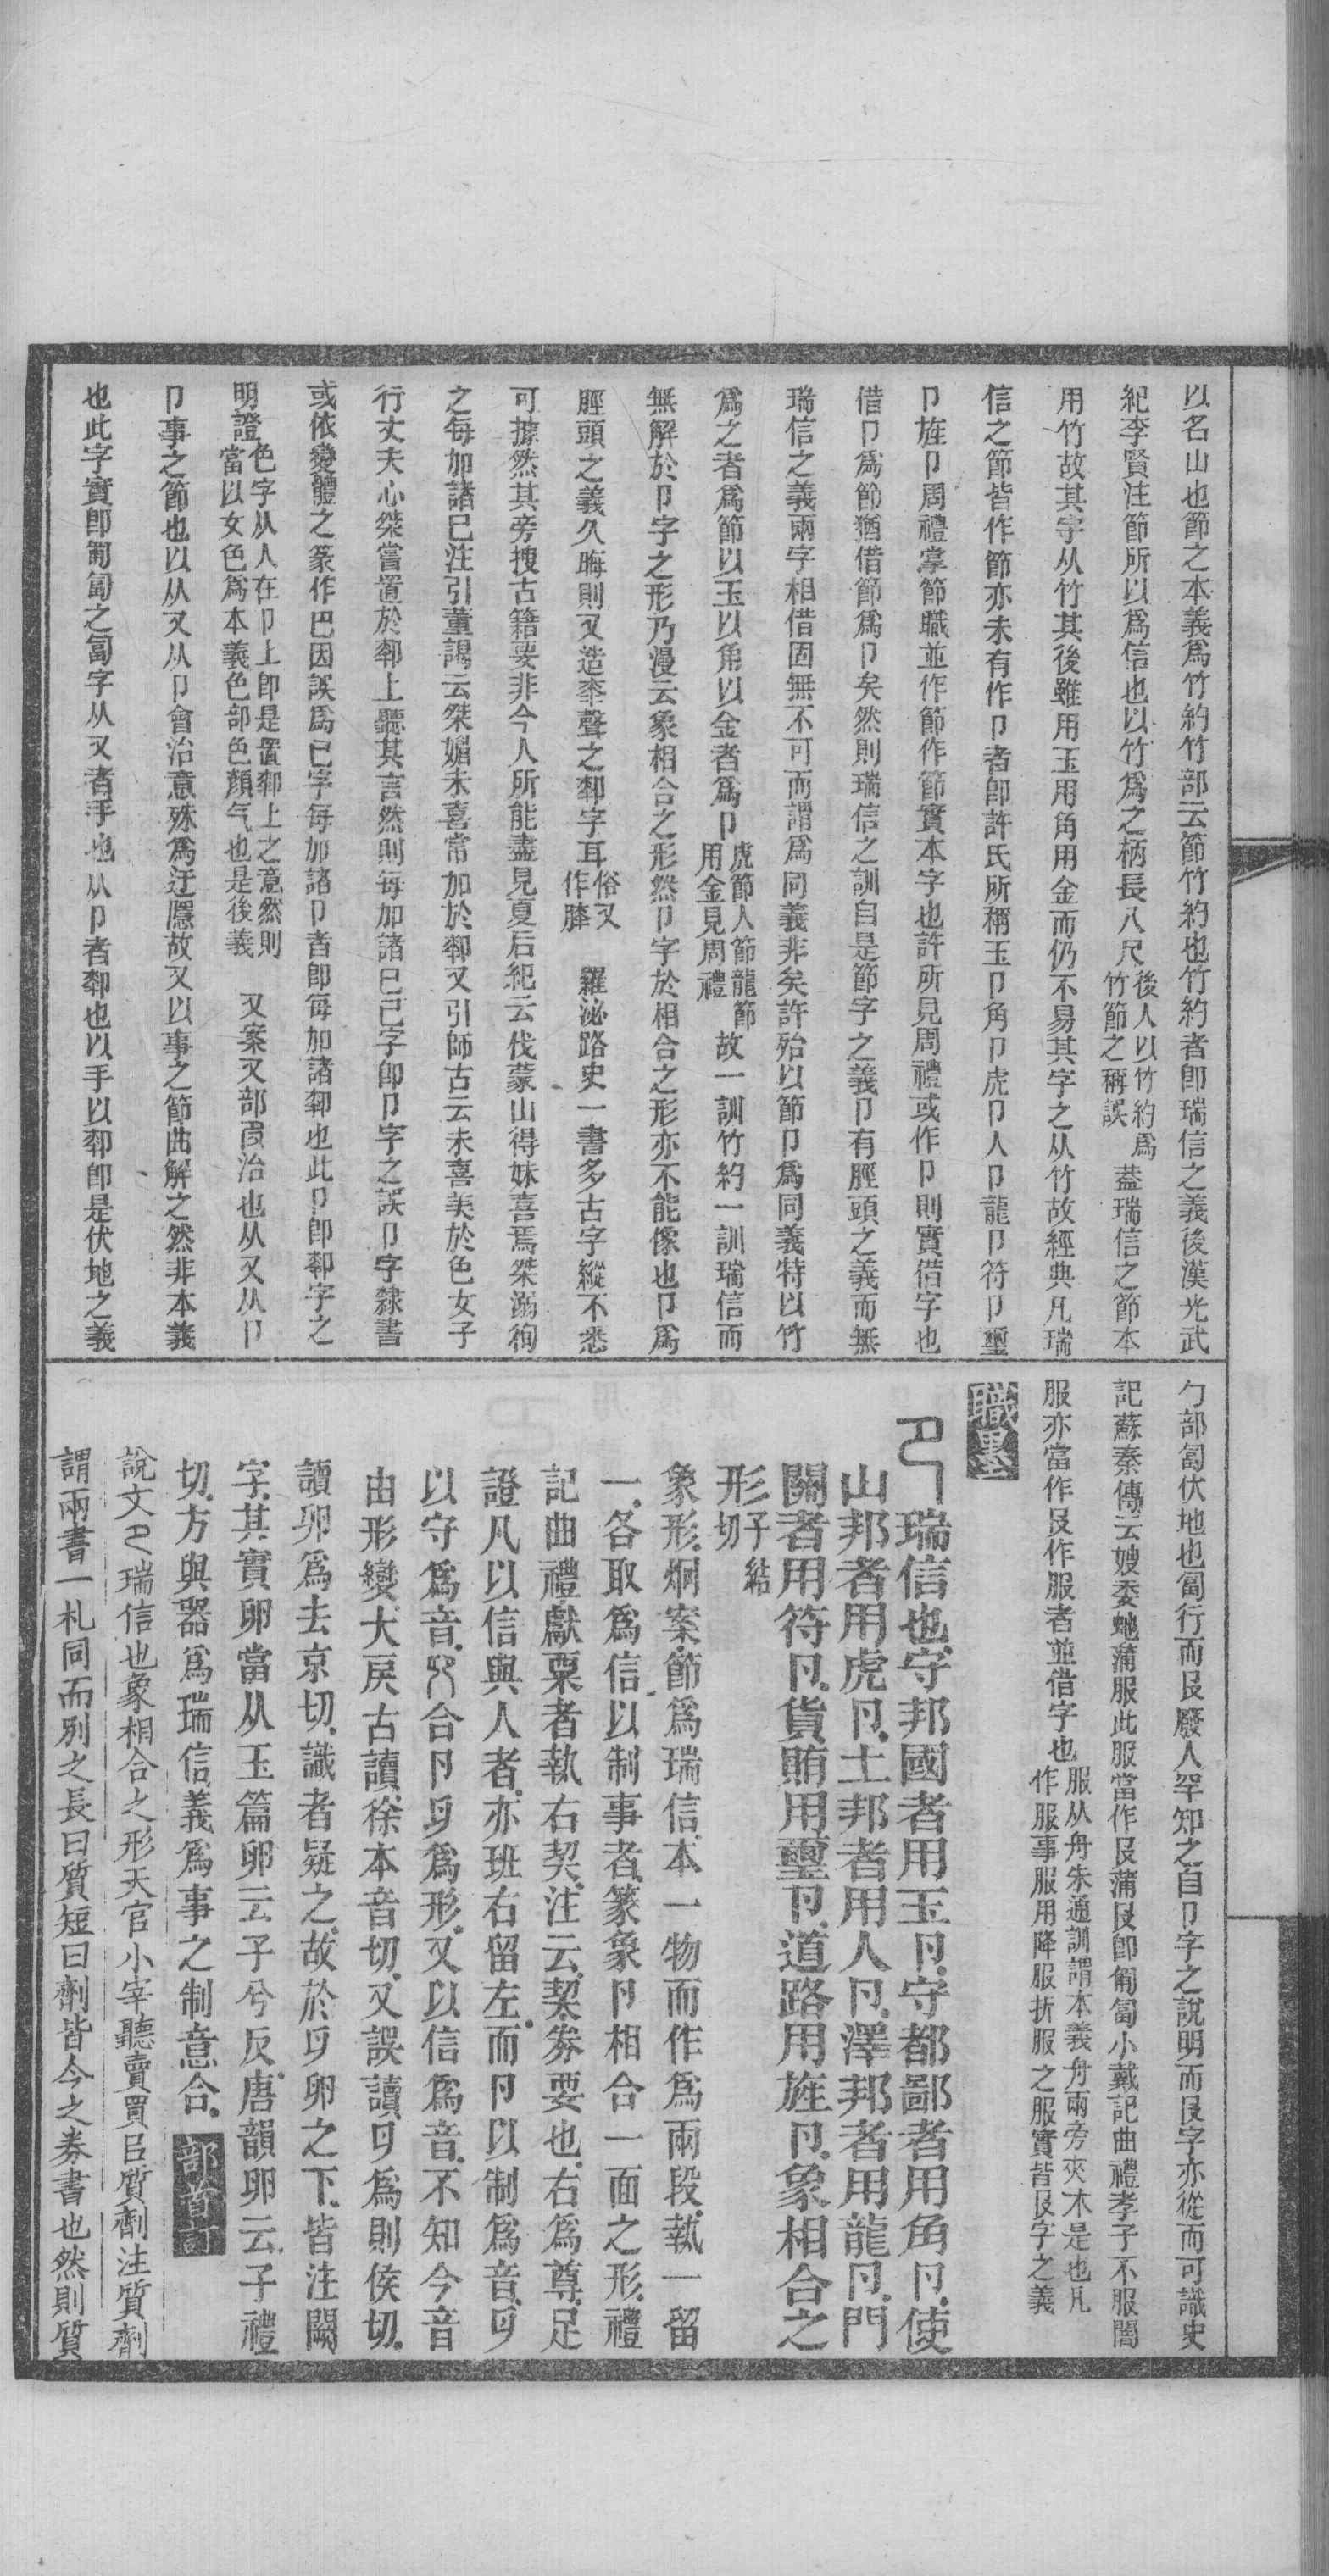 以名山也節之本義爲竹約竹部云節竹約也竹約者卽瑞信之義後漢光武
紀李賢注節所以爲信也以竹爲之柄長八尺後人以竹約爲竹節之稱誤蓋瑞信之節本
用竹故其字从竹其後雖用玉用角用金而仍不易其字之从竹故經典凡瑞
信之節皆作節亦未有作卩者卽許氏所稱玉卩角卩虎卩人卩龍卩符卩璽
卩旌卩周禮掌節職並作節作節實本字也許所見周禮或作卩則實借字也
借卩爲節猶借節爲卩矣然則瑞信之訓自是節字之義卩有脛頭之義而無
瑞信之義兩字相借固無不可而謂爲同義非矣許殆以節卩爲同義特以竹
爲之者爲節以玉以角以金者爲卩虎節人節龍節用金見周禮故一訓竹約一訓瑞信而
無解於卩字之形乃漫云象相合之形然卩字於相合之形亦不能像也卩爲
脛頭之義久晦則又造桼聲之厀字耳俗又作膝羅泌路史一書多古字縱不悉
可據然其旁搜古籍要非今人所能盡見夏后紀云伐蒙山得妺喜焉桀溺徇
之每加諸巳注引董謁云桀媚末喜常加於厀又引師古云末喜美於色女子
行丈夫心桀嘗置於厀上聽其言然則每加諸巳巳字卽卩字之誤卩字隸書
或依變體之篆作巴因誤爲巳字每加諸卩者卽每加諸厀也此卩卽厀字之
明證色字从人在卩上卽是置厀上之意然則當以女色爲本義色部色顏气也是後義又案又部𠬝治也从又从卩
卩事之節也以从又从卩會治意殊爲迂隱故又以事之節曲解之然非本義
也此字實卽匍匐之匐字从又者手也从卩者厀也以手以厀卽是伏地之義
勹部匐伏地也匐行而𠬝廢人罕知之自卩字之說明而𠬝字亦從而可識史
記蘇秦傳云嫂委虵蒲服此服當作𠬝蒲𠬝卽匍匐小戴記曲禮孝子不服闇
服亦當作𠬝作服者並借字也服从舟朱通訓謂本義舟兩旁夾木是也凡作服事服用降服折服之服實皆𠬝字之義
職墨
卪瑞信也守邦國者用玉卪守都鄙者用角卪使
山邦者用虎卪土邦者用人卪澤邦者用龍卪門
關者用符卪貨賄用璽卪道路用旌卪象相合之
形子結切
象形烱案節爲瑞信本一物而作爲兩段執一留
一各取爲信以制事者篆象卪相合一面之形禮
記曲禮獻粟者執右契注云契劵要也右爲尊足
證凡以信與人者亦班右留左而卪以制爲音𠨎
以守爲音𠨍合卪𠨎爲形又以信爲音不知今音
由形變大戾古讀徐本音切又誤讀𠨎爲則候切
讀卯爲去京切識者疑之故於𠨎卯之下皆注闕
字其實卯當从玉篇卯云子兮反唐韻卯云子禮
切方與器爲瑞信義爲事之制意合部首訂
說文卪瑞信也象相合之形天官小宰聽賣買㠯質劑注質劑
謂兩書一札同而別之長曰質短曰劑皆今之券書也然則質